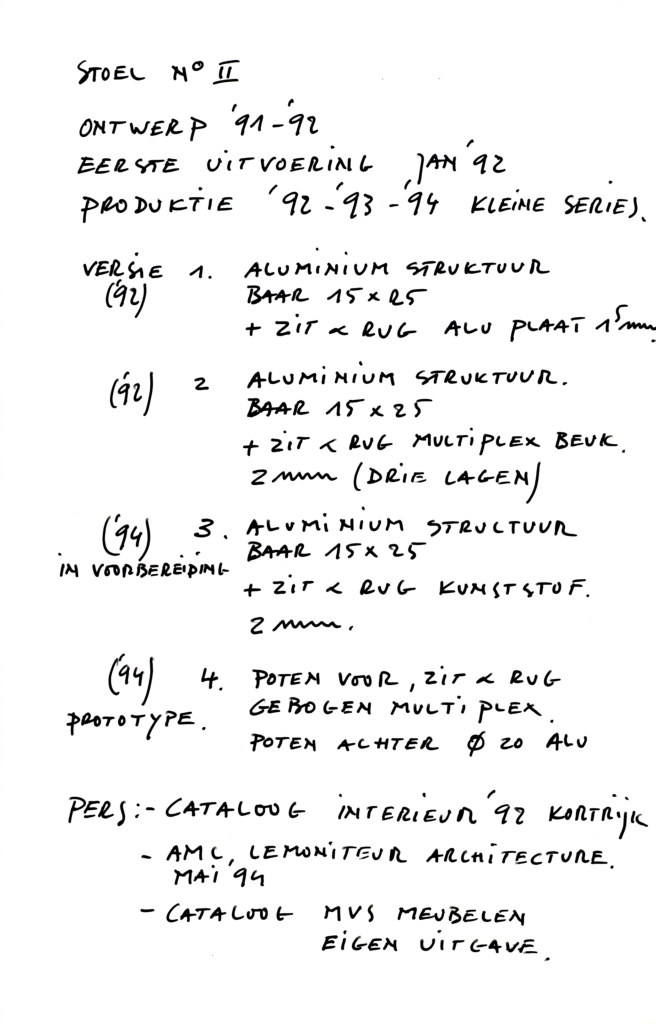 STOEL N° II
ONTWERP '91-'92
EERSTE UITVOERING JAN '92
PRODUKTIE '92-'93-'94 KLEINE SERIES.
VERSIE 1. ALUMINIUM STRUKTUUR
('92) BAAR 15 x 25
+ ZIT & RUG ALU PLAAT 1⁵mm.
('92) 2 ALUMINIUM STRUKTUUR.
BAAR 15 x 25
+ ZIT & RUG MULTIPLEX BEUK.
2 mm (DRIE LAGEN)
('94) 3. ALUMINIUM STRUCTUUR
IN VOORBEREIDING BAAR 15 x 25
+ ZIT & RUG KUNSTSTOF.
2 mm.
('94) 4. POTEN VOOR, ZIT & RUG
PROTOTYPE. GEBOGEN MULTIPLEX.
POTEN ACHTER Ø 20 ALU
PERS:- CATALOOG INTERIEUR '92 KORTRIJK
- AMC, LEMONITEUR ARCHITECTURE.
MAI '94
- CATALOOG MVS MEUBELEN
EIGEN UITGAVE.